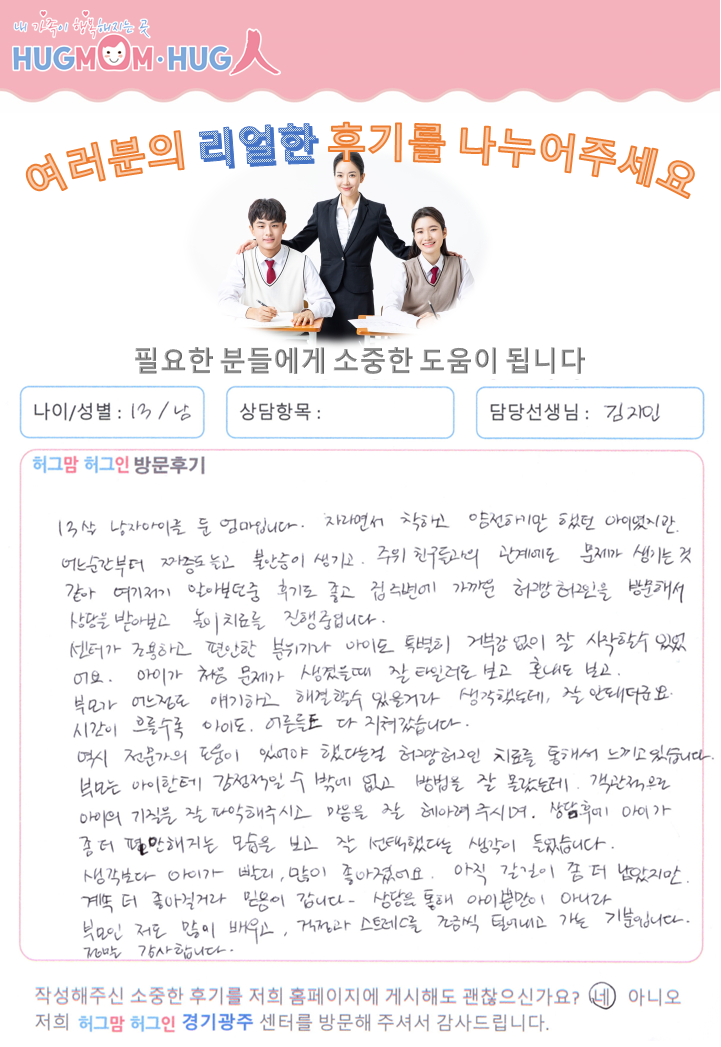 내 가족이 행복해지는 곳
HUGMOM·HUG人
여러분의 리얼한 후기를 나누어주세요
필요한 분들에게 소중한 도움이 됩니다
나이/성별 : 13 / 남
상담항목 :
담당선생님 : 김지민
허그맘 허그인 방문후기
13살 남자아이를 둔 엄마입니다. 자라면서 착하고 얌전하기만 했던 아이였지만.
어느순간부터 짜증도 늘고 불안증이 생기고. 주위 친구들과의 관계에도 문제가 생기는 것
같아 여기저기 알아보던중 후기도 좋고 집주변에 가까운 허그맘허그인을 방문해서
상담을 받아보고 놀이치료를 진행중입니다.
센터가 조용하고 편안한 분위기라 아이도 특별히 거부감 없이 잘 시작할수 있었
어요. 아이가 처음 문제가 생겼을때 잘 타일러도 보고 혼내도 보고.
부모가 어느정도 얘기하고 해결할수 있을거라 생각했는데, 잘 안돼더군요.
시간이 흐를수록 아이도. 어른들도 다 지쳐갔습니다.
역시 전문가의 도움이 있어야 했다는걸 허그맘허그인 치료를 통해서 느끼고있습니다.
부모는 아이한테 감정적일 수 밖에 없고 방법을 잘 몰랐는데. 객관적으로
아이의 기질을 잘 파악해주시고 마음을 잘 헤아려 주시며. 상담후에 아이가
좀 더 편안해지는 모습을 보고 잘 선택했다는 생각이 들었습니다.
생각보다 아이가 빨리, 많이 좋아졌어요. 아직 갈길이 좀 더 남았지만.
계속 더 좋아질거라 믿음이 갑니다- 상담을 통해 아이뿐만이 아니라
부모인 저도 많이 배우고, 걱정과 스트레스를 조금씩 털어내고 가는 기분입니다.
정말 감사합니다.
작성해주신 소중한 후기를 저희 홈페이지에 게시해도 괜찮으신가요? 네 아니오
저희 허그맘 허그인 경기광주 센터를 방문해 주셔서 감사드립니다.